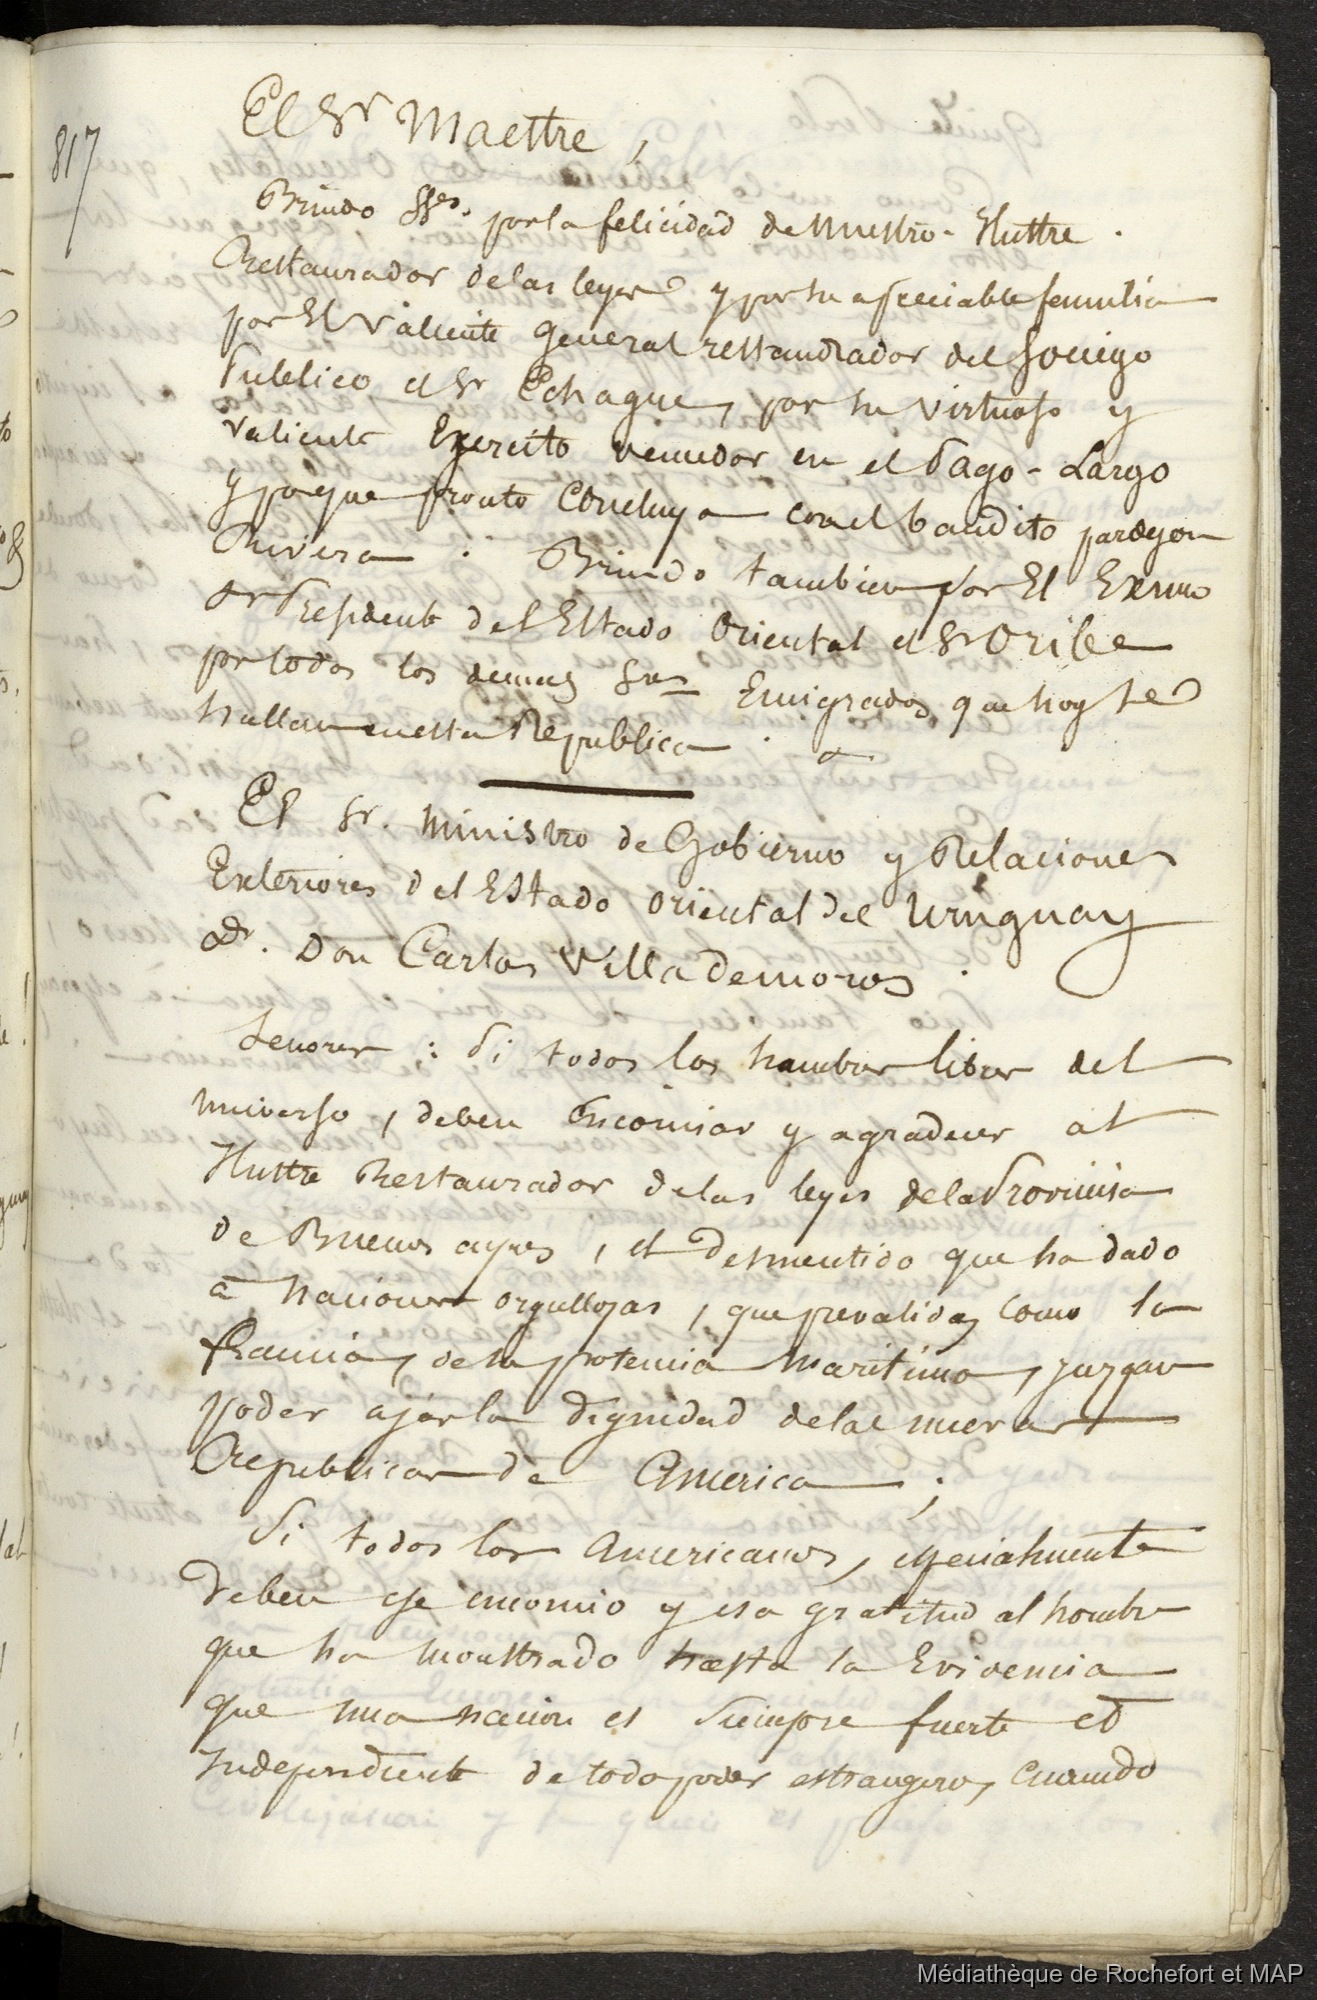 817
El Sr Maestre,
Brindo SSes. por la felicidad de nuestro Ilustre
Restaurador de las leyes y por su apreciable familia
por El Valiente general restaurador del Sociego
Publico el Sr Echague, por su virtuoso y
valiente Exercito vencedor en el Pago-Largo
y porque pronto concluya con el bandito pardejon
Rivera. Brindo tambien por El Exmo
Sr Presidente del Estado Oriental el Sr Oribe
por todos los demas Sres Emigrados que hoy se
hallan en esta Republica.
El Sr. Ministro de Gobierno y Relaciones
Exteriores del Estado Oriental del Uruguay
Dr. Don Carlos Villademoros.
Senores: Si todos los hombres libres del
universo, deben encomiar y agradecer al
Ilustre Restaurador de las leyes de la Provincia
de Buenos ayres, el desmentido que ha dado
a naciones orgullosas, que prevalidas como la
Francia, de su potencia maritima, juzgan
poder ajar la dignidad de las nuevas
Republicas de America;
Si todos los Americanos, especialmente
deben ese encomio y esa gratitud al hombre
que ha monstrado hasta la Evidencia
que una nacion es siempre fuerte et
independiente de todo poder estrangero, cuando
Médiathèque de Rochefort et MAP